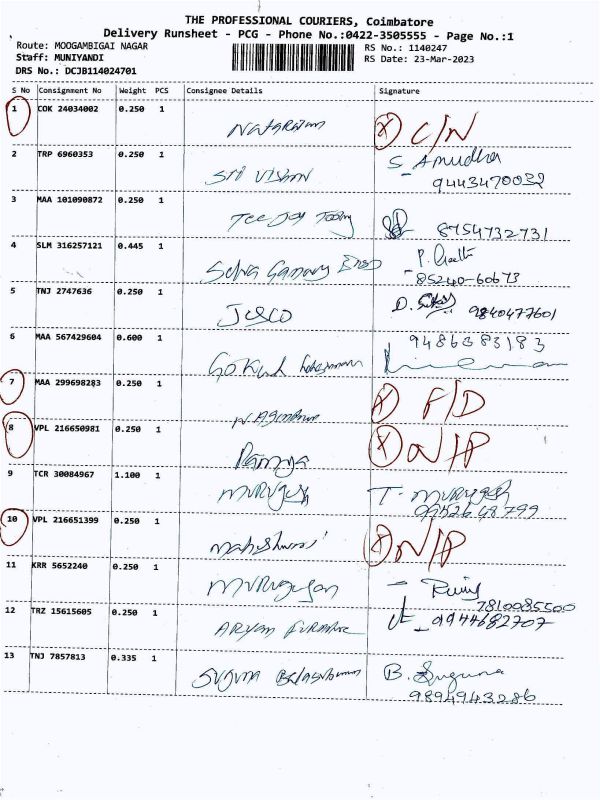 THE PROFESSIONAL COURIERS, Coimbatore
Delivery Runsheet - PCG - Phone No.:0422-3505555 - Page No.:1
Route: MOOGAMBIGAI NAGAR RS No.: 1140247
Staff: MUNIYANDI RS Date: 23-Mar-2023
DRS No.: DCJB114024701
S No Consignment No Weight PCS Consignee Details Signature
1 COK 24034002 0.250 1 Natarajan X C/N
2 TRP 6960353 0.250 1 Sri Vishnu S. Amudha
9443470032
3 MAA 101090872 0.250 1 Tee Joy 8754732731
4 SLM 316257121 0.445 1 Selva Ganapathy P.
85240-60673
5 TNJ 2747636 0.250 1 Jesco D. 9840477601
6 MAA 567429604 0.600 1 Gokul 9486383183
7 MAA 299698283 0.250 1 X F/D
8 VPL 216650981 0.250 1 Ramya X N/P
9 TCR 30084967 1.100 1 Murugesh T. Murugesh
9952648799
10 VPL 216651399 0.250 1 Maheshwari X N/P
11 KRR 5652240 0.250 1 Murugesan
7810085500
12 TRZ 15615605 0.250 1 Aryan Furniture 9944682707
13 TNJ 7857813 0.335 1 Suguna B. Suguna
9894943286